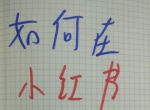 如何在
小红书